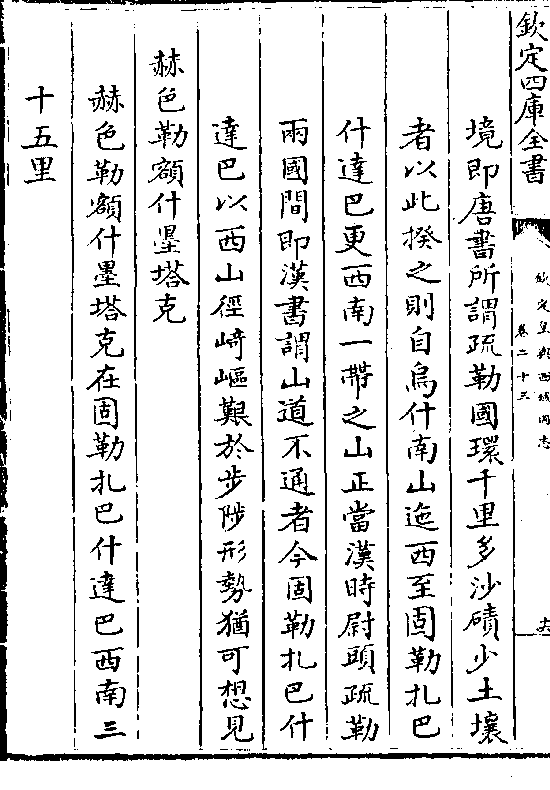 欽定四庫全書
欽定皇輿西域圖志
卷二十三
境即唐書所謂疏勒國環千里多沙磧少土壤
者以此揆之則自烏什南山迤西至固勒扎巴
什達巴更西南一帶之山正當漢時尉頭疏勒
兩國間即漢書謂山道不通者今固勒扎巴什
達巴以西山徑崎嶇艱於步陟形勢猶可想見
赫色勒額什墨塔克
赫色勒額什墨塔克在固勒扎巴什達巴西南三
十五里